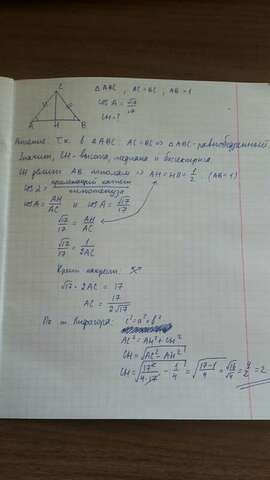 C
A H B
△ABC, AC=BC, AB=1
cos A = √17/17
CH-?
Решение: Т.к. в △ABC: AC=BC ⇒ △ABC-равнобедренный
Значит, CH-высота, медиана и биссектриса.
CH делит AB пополам ⇒ AH=HB=1/2 (AB=1)
cos α = прилежащий катет/гипотенуза
cos A = AH/AC и cos A = √17/17
√17/17 = AH/AC
√17/17 = 1/2AC
Крест накрест
√17 · 2AC = 17
AC = 17/2√17
По т. Пифагора: c²=a²+b²
AC² = AH²+CH²
CH=√AC²-AH²
CH=√17²/4·17 - 1/4 = √17-1/4 = √16/√4 = 4/2 = 2